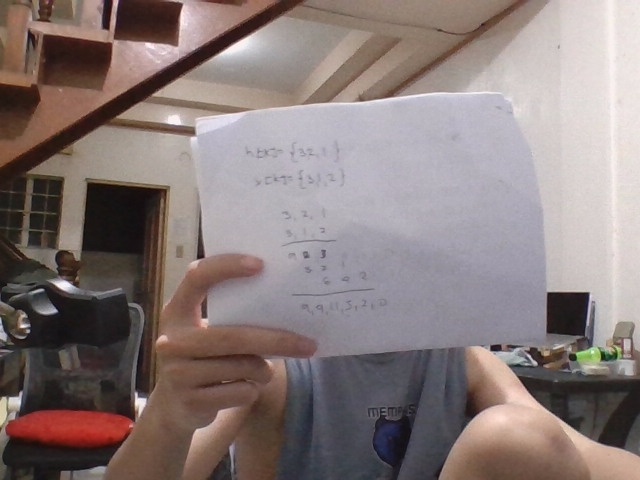 h[k]={32,1}
x[k]={31,2}
3, 2, 1
3, 1, 2
9 6 3
3 2 1
6 4 2
9, 9, 11, 5, 2, 0
MEMPHIS